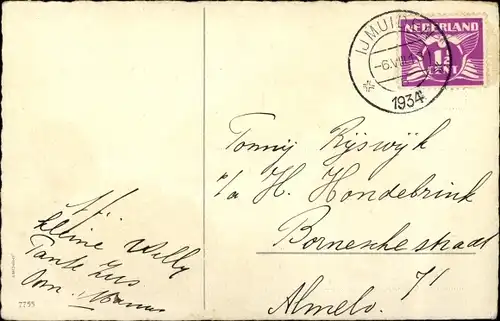 IJMUIDEN
-6.VIII
1934
NEDERLAND
1½
CENT
Tonny Rijswijk
p/a H. Hondebrink
Bornesche straat
71
Almelo.
Af.
kleine Willy
Tante Zus
Oom
7755